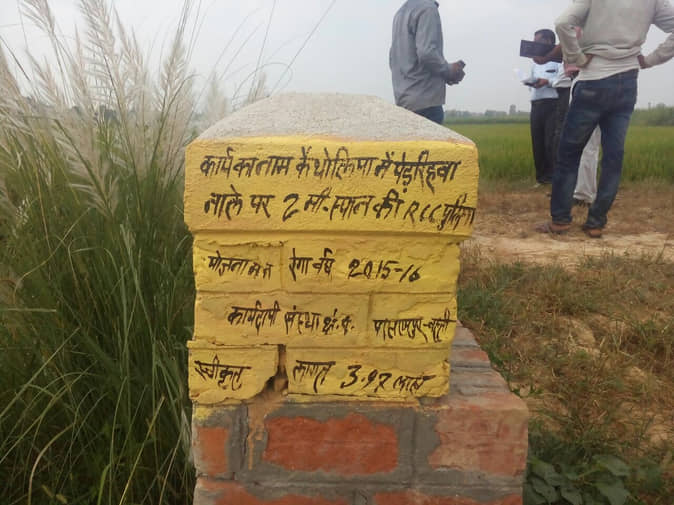 कार्य का नाम कैथोलिया में पेड़रिहवा
नाले पर 2 मी. स्पान की RCC पुलिया
योजना म न रेगा वर्ष 2015-16
कार्यदायी संस्था क्षे. पं.
स्वीकृत लागत 3.97 लाख